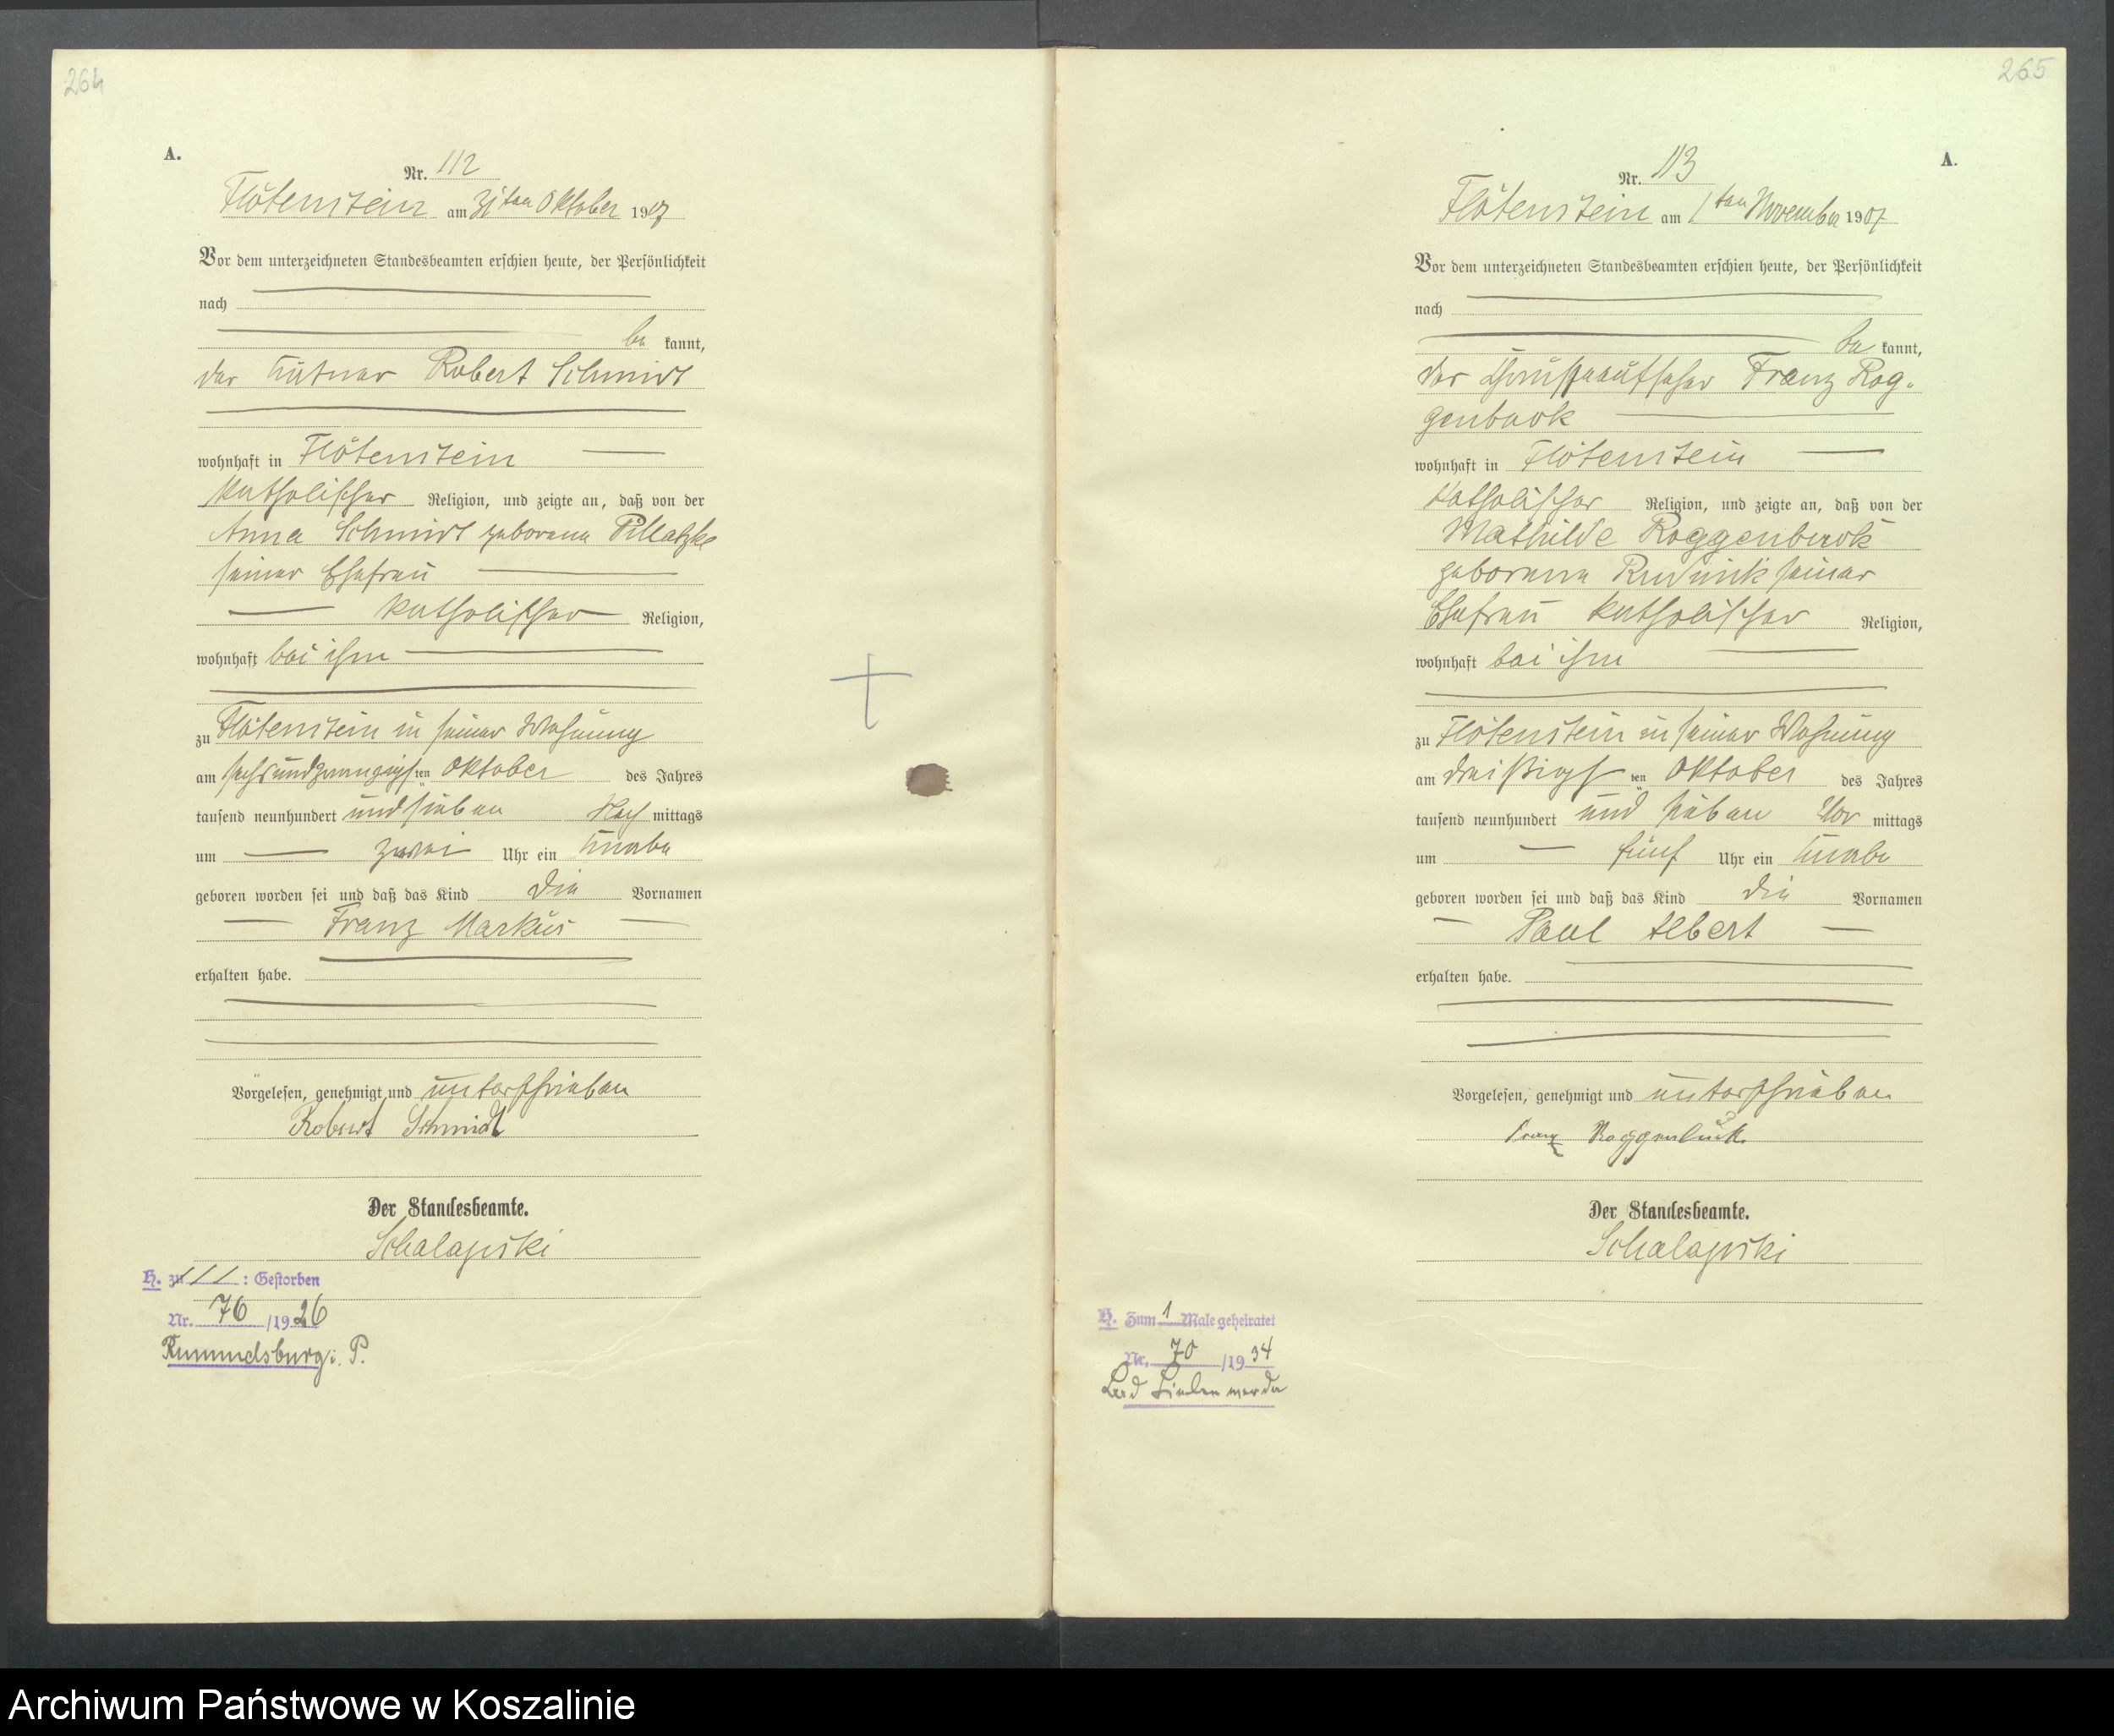 264
A.
Nr. 112
Flötenstein am 31ten Oktober 1907
Vor dem unterzeichneten Standesbeamten erschien heute, der Persönlichkeit
nach
be kannt,
der Kätner Robert Schmidt
wohnhaft in Flötenstein
katholischer Religion, und zeigte an, daß von der
Anna Schmidt geborene Pillatzke
seiner Ehefrau
katholischer Religion,
wohnhaft bei ihm
zu Flötenstein in seiner Wohnung
am sechsundzwanzigsten Oktober des Jahres
tausend neunhundert und sieben Nach mittags
um zwei Uhr ein Knabe
geboren worden sei und daß das Kind die Vornamen
Franz Markus
erhalten habe.
Vorgelesen, genehmigt und unterschrieben
Robert Schmidt
Der Standesbeamte.
Schalapski
H. zu : Gestorben
Nr. 76 /1926
Rummelsburg i. P.
265
A.
Nr. 113
Flötenstein am 1ten November 1907
Vor dem unterzeichneten Standesbeamten erschien heute, der Persönlichkeit
nach
be kannt,
der Franz Rog-
genbuck
wohnhaft in Flötenstein
katholischer Religion, und zeigte an, daß von der
Mathilde Roggenbuck
geborene Rudnick seiner
Ehefrau katholischer Religion,
wohnhaft bei ihm
zu Flötenstein in seiner Wohnung
am dreißigsten Oktober des Jahres
tausend neunhundert und sieben Vor mittags
um fünf Uhr ein Knabe
geboren worden sei und daß das Kind die Vornamen
Paul Albert
erhalten habe.
Vorgelesen, genehmigt und unterschrieben
Franz Roggenbuck
Der Standesbeamte.
Schalapski
H. Zum 1 Male geheiratet
Nr. 70 /1934
Bad Liebenwerda
Archiwum Państwowe w Koszalinie